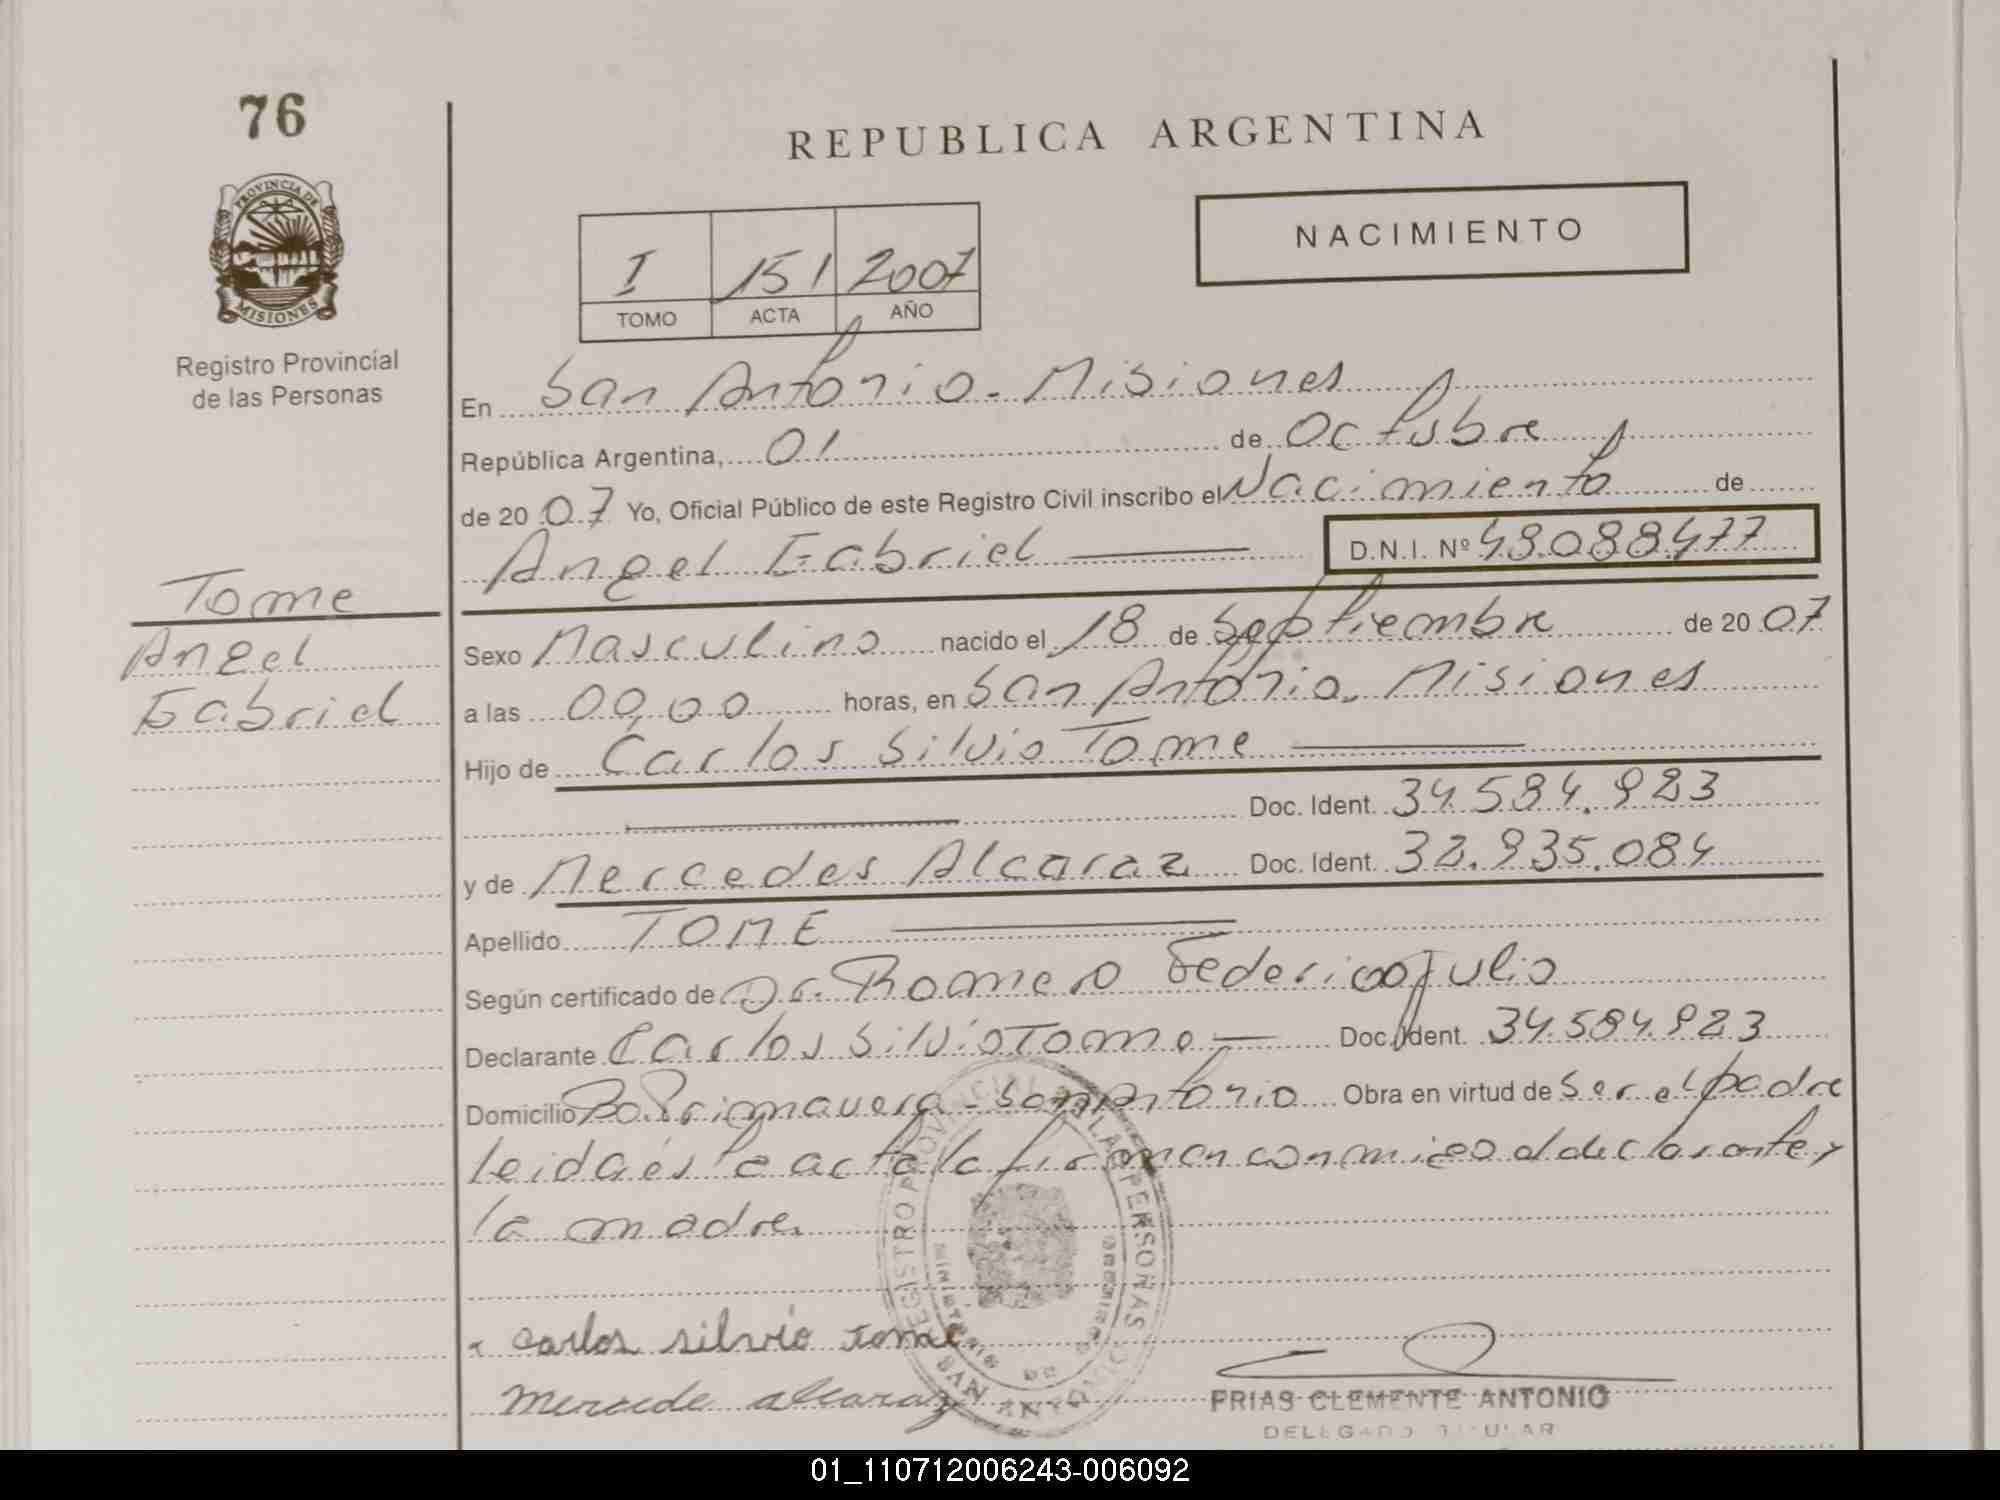 76
REPUBLICA ARGENTINA
PROVINCIA DE
MISIONES
Registro Provincial
de las Personas
NACIMIENTO
I 151 2007
TOMO ACTA AÑO
En San Antonio - Misiones
República Argentina, 01 de Octubre
de 20 07 Yo, Oficial Público de este Registro Civil inscribo el Nacimiento de
Angel Gabriel D.N.I. Nº 48.088.477
Tome
Angel
Gabriel
Sexo Masculino nacido el 18 de Septiembre de 20 07
a las 00,00 horas, en San Antonio. Misiones
Hijo de Carlos Silvio Tome
Doc. Ident. 34.584.923
y de Mercedes Alcaraz Doc. Ident. 32.935.084
Apellido TOME
Según certificado de Dr. Romero Federico Julio
Declarante Carlos Silvio Tome Doc. Ident. 34.584.923
Domicilio Bo Primavera - San Antonio Obra en virtud de Ser el padre
leida és te acta la firman conmigo el declarante y
la madre
REGISTRO PROVINCIAL DE LAS PERSONAS
MINISTERIO DE GOBIERNO
SAN ANTONIO
carlos silvio tome
mercede alcaraz
FRIAS CLEMENTE ANTONIO
DELEGADO TITULAR
01_110712006243-006092